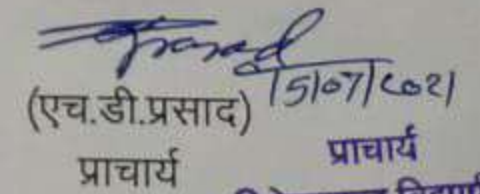 Prasad
15/07/2021
(एच.डी.प्रसाद)
प्राचार्य
प्राचार्य